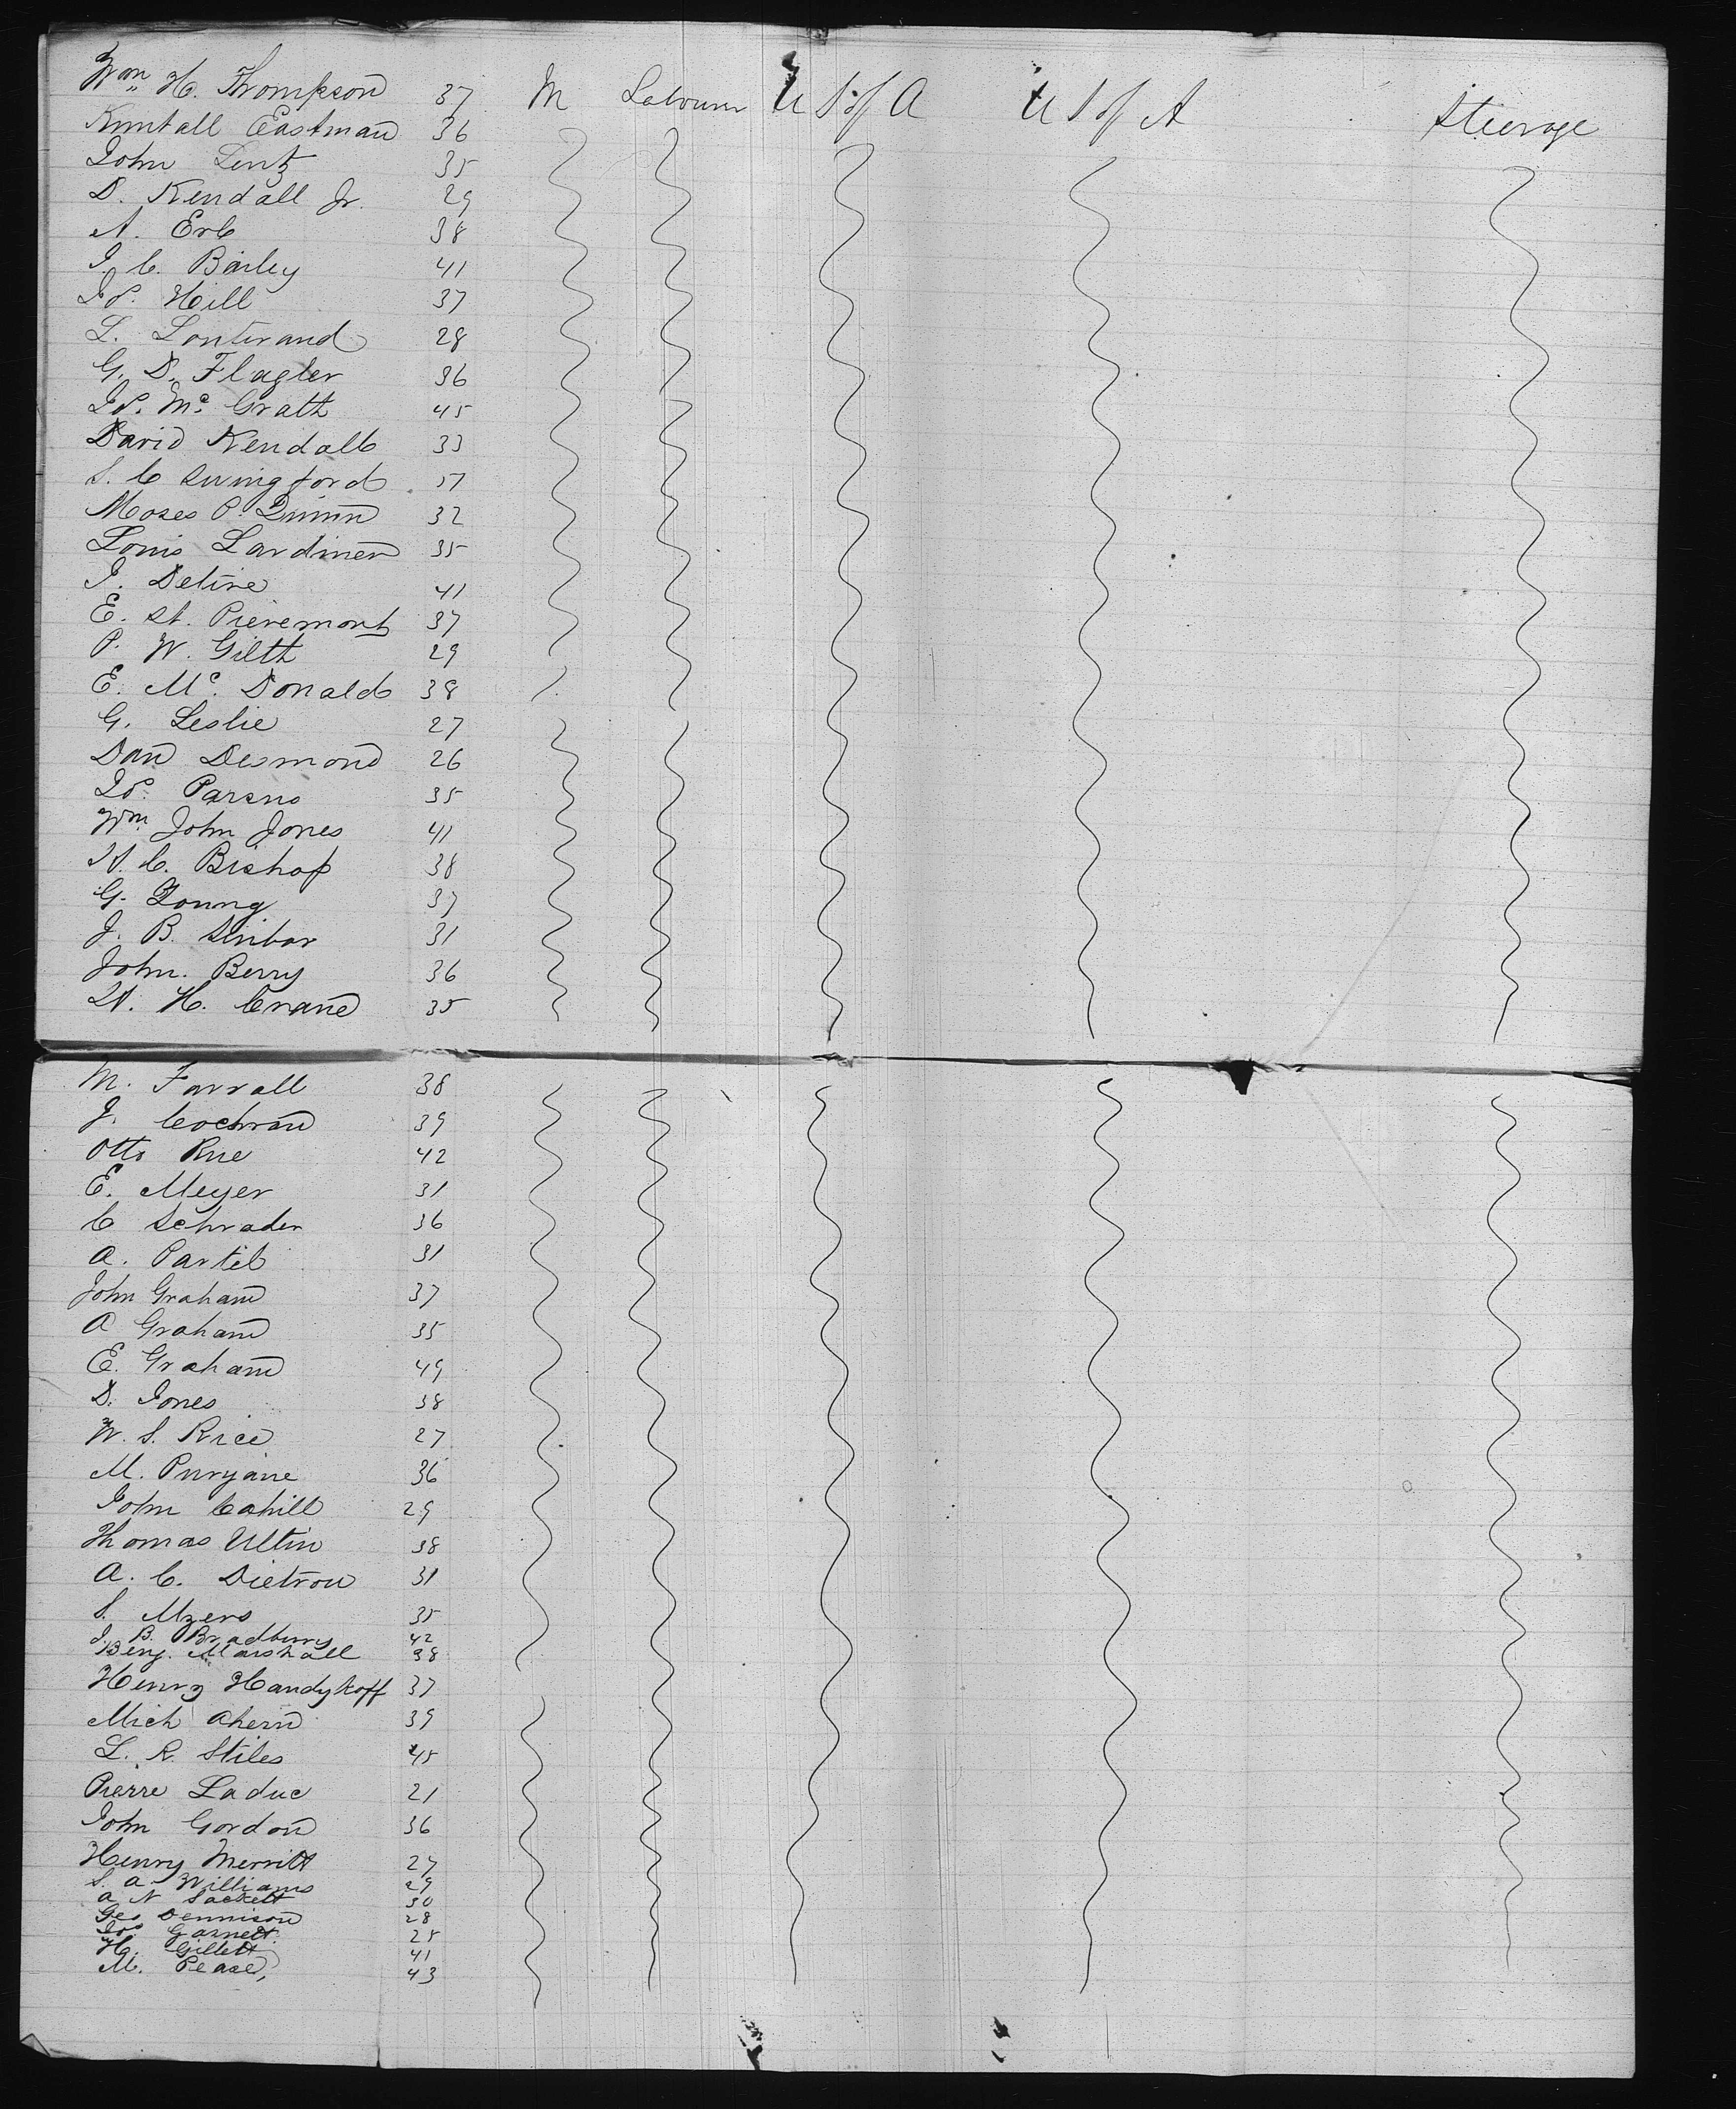 Wm H. Thompson 37 M Labourer U S of A U S of A Steerage
Kimball Eastman 36
John Lentz 35
D. Kendall Jr. 29
A. Erb 38
J. C. Bailey 41
Js. Hill 37
L. 28
G. D. Flagler 36
Js. Mc Grath 45
David Kendall 33
S. C Swingford 37
Moses P. Quinn 32
Louis Lardiner 35
J. Deline 41
E. St. Pieremont 37
P. W. Gilth 29
E. Mc. Donald 38
G. Leslie 27
Dan Desmond 26
Js. Parsns 35
Wm John Jones 41
H. C. Bishop 38
G. Young 37
J. B. 31
John. Berry 36
W. H. Crane 35
M. Farrall 38
J. Cochran 39
Otto Rue 42
E. Meyer 31
C Schrader 36
A. Partil 31
John Graham 37
A Graham 35
E. Graham 49
D. Jones 38
W. S. Rice 27
M. Puryane 36
John Cahill 29
Thomas Ultin 38
A. C. Dietron 31
S. Myers 35
J. B. Bradbury 42
Benj. Marshall 38
Henry Handykoff 37
Mich Ahern 39
L. R. Stiles 45
Pierre Laduc 21
John Gordon 36
Henry Merritt 27
S. A Williams 29
A N Sackett 30
Geo Dennison 28
Jos Garnett. 25
H. Gillett 41
M. Pease, 43